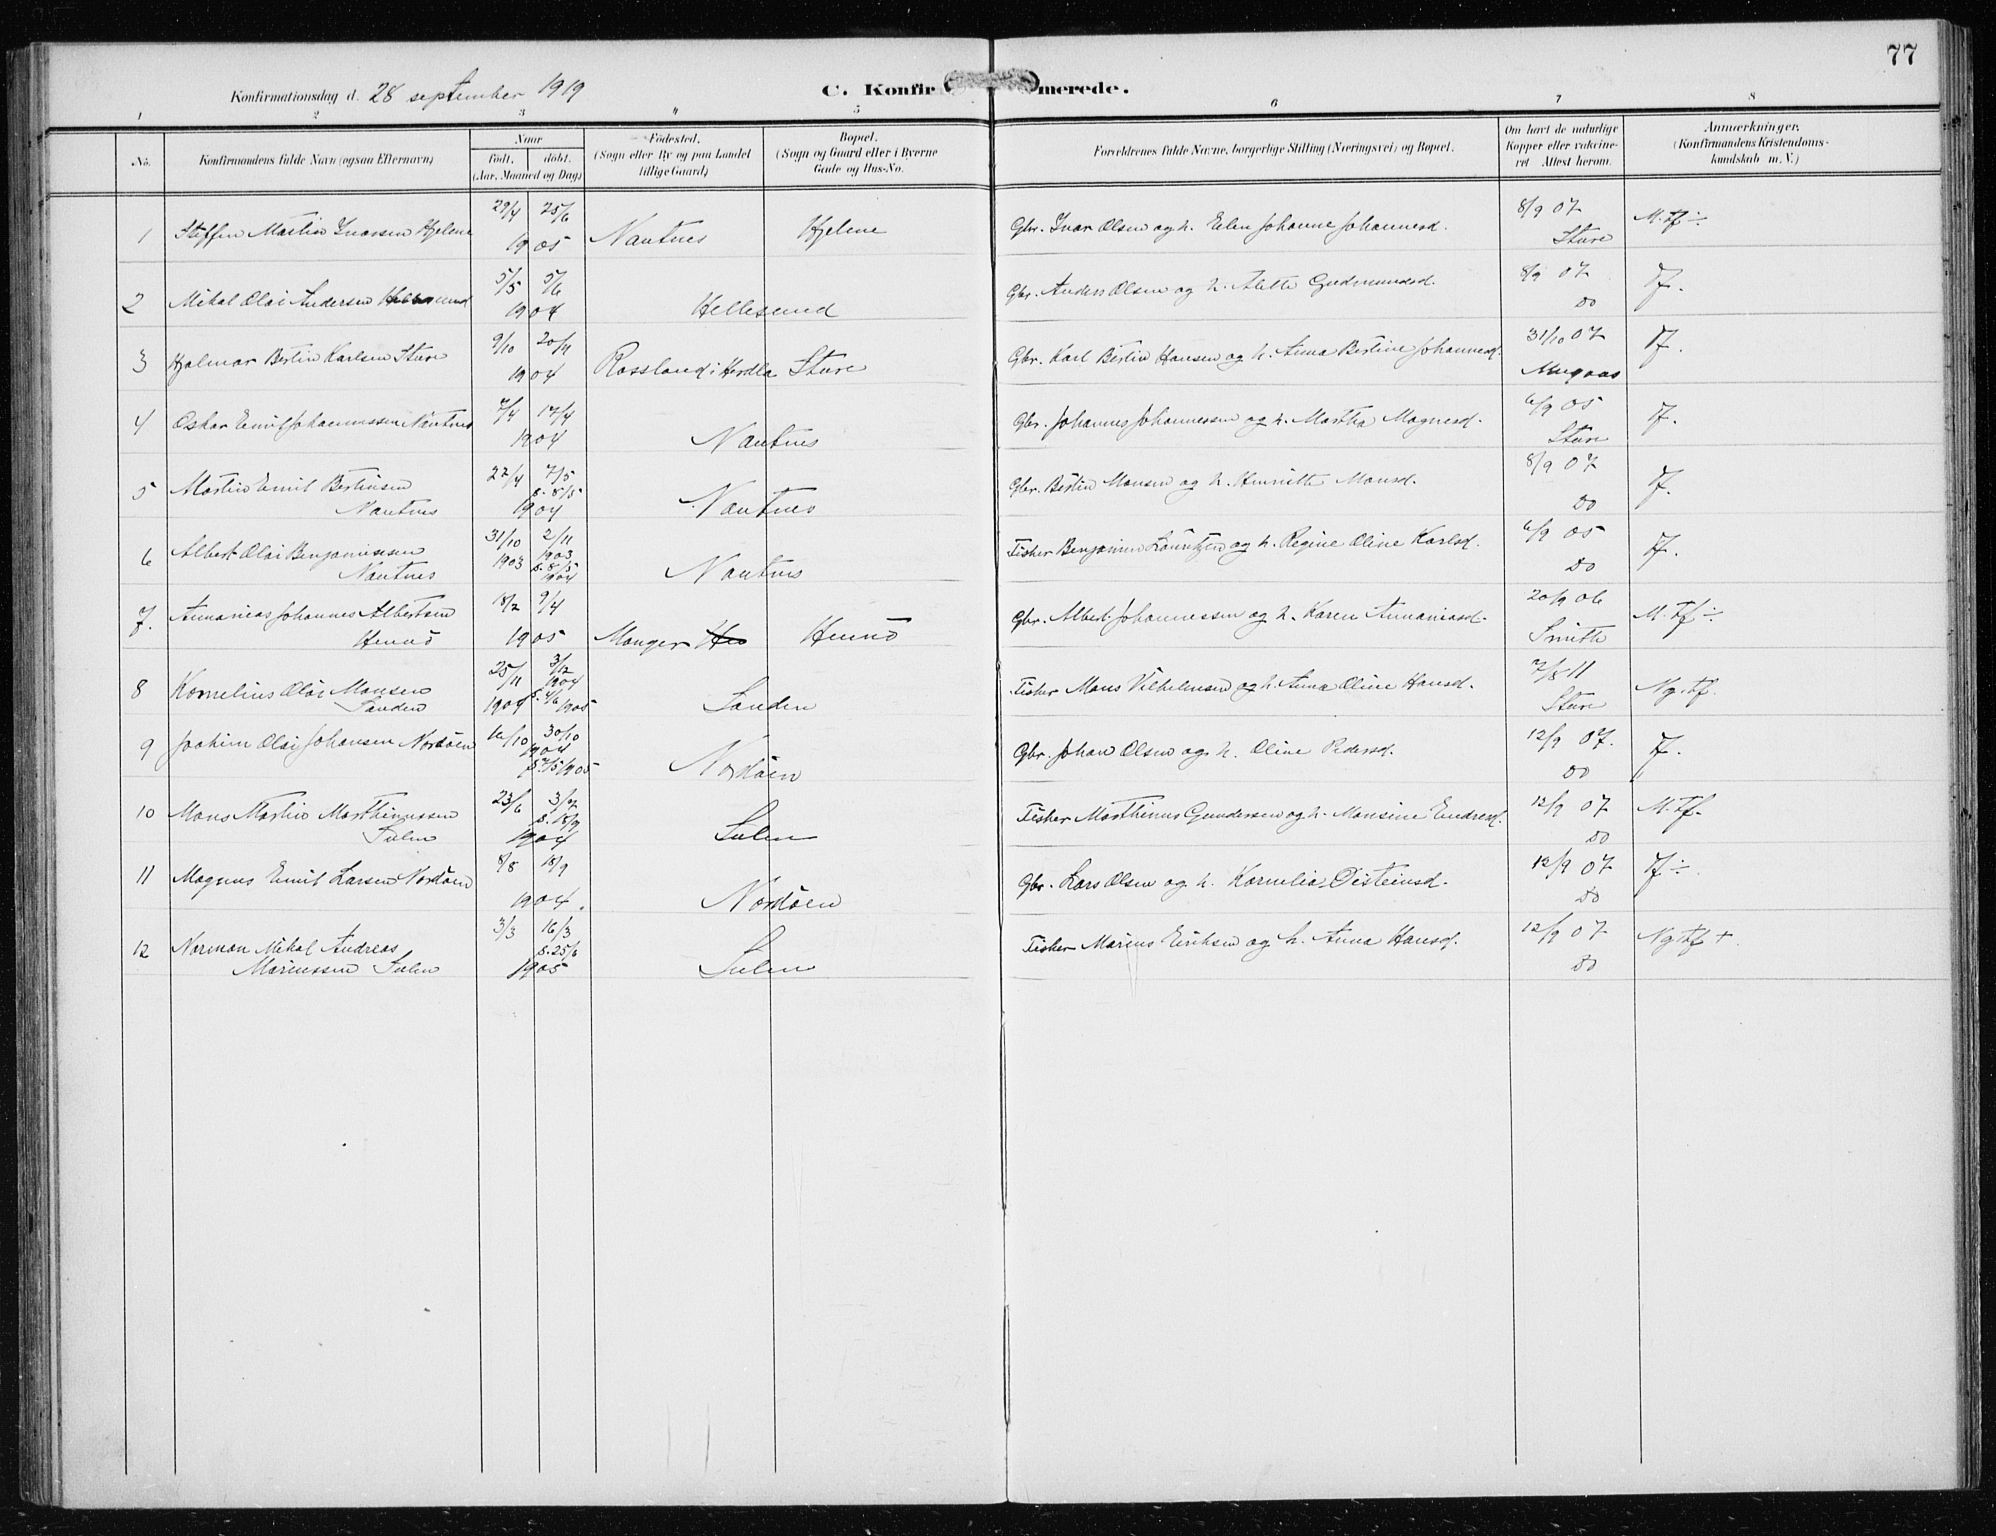 77
Konfirmationsdag d. 28 september 1919
C. Konfirmerede.
1 2 3 4 5 6 7 8
No.
Konfirmandens fulde Navn (ogsaa Efternavn)
Naar
født. døbt.
(Aar, Maaned og Dag)
Fødested.
(Sogn eller By og paa Landet
tillige Gaard)
Bopæl.
(Sogn og Gaard eller i Byerne
Gade og Hus-No.
Forældrenes fulde Navne, borgerlige Stilling (Næringsvei) og Bopæl.
Om havt de naturlige
Kopper eller vakcine-
ret Attest herom.
Anmærkninger.
(Konfirmandens Kristendoms-
kundskab m. V.)
1 Steffen Martin Ivarsen Hjelme 29/4 25/6 1905 Nautnes Hjelme Gbr. Ivar Olsen og h. Elen Johanne Johannesd. 8/9 07 Sture M. tf ÷
2 Mikal Olai Andersen Hellesund 5/5 5/6 1904 Hellesund Gbr. Anders Olsen og h. Alette Gudmundsd. 8/9 07 Do Tf.
3 Hjalmar Bertin Karlsen Sture 9/10 20/11 1904 Rossland i Herdla Sture Gbr. Karl Bertin Hansen og h. Anna Bertine Johannesd. 31/10 07 Mugaas Tf.
4 Oskar Emil Johannessen Nautnes 7/4 17/4 1904 Nautnes Gbr. Johannes Johannessen og h. Martha Magnesd. 6/9 05 Sture Tf.
5 Martin Emil Bertinsen
Nautnes 22/4 7/5 s. 8/5 1904 Nautnes Gbr. Bertin Monsen og h. Henriette Monsd. 8/9 07 Do Tf.
6 Albert Olai Benjaminsen
Nautnes 31/10 1903 2/11 1903 s. 8/5 1904 Nautnes Fisker Benjamin Lauritzen og h. Regine Oline Karlsd. 6/9 05 Do Tf.
7. Annanias Johannes Albertsen
Hernö 18/2 9/4 1905 Manger Hernö Gbr. Albert Johannessen og h. Karen Annaniasd. 20/9 06 Smith M. Tf ÷
8 Kornelius Olai Monsen
Sanden 25/11 1904 3/12 1904 s. 4/6 1905 Sanden Fisker Mons Vilhelmsen og h. Anna Oline Hansd. 7/8 11 Sture Ng. tf.
9 Joakim Olai Johansen Nordöen 16/10 30/10 1904 s. 7/5 1905 Nordöen Gbr. Johan Olsen og h. Oline Pedersd. 12/9 07. Do Tf.
10 Mons Martin Marthinussen
Sulen 23/6 3/7 s. 18/9 1904 Sulen Fisker Marthinus Gundersen og h. Monsine Endresd. 12/9 07 Do M. Tf.
11 Magnus Emil Larsen Nordöen 8/8 18/9 1904. Nordöen Gbr. Lars Olsen og h. Kornelia Oisteinsd. 12/9 07 Do Tf ÷.
12 Norman Mikal Andreas
Mariussen Sulen 3/3 16/3 s. 25/6 1905 Sulen Fisker Marius Eriksen og h. Anna Hansd. 12/9 07 Do Ng tf +